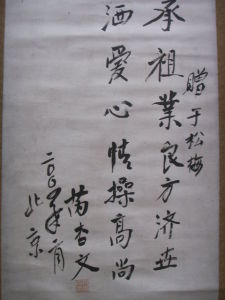 赠于松梅
承祖業良方济世
洒愛心情操高尚
二〇〇年 月
北京